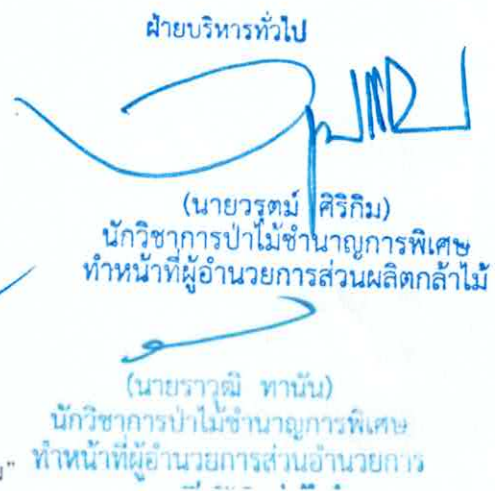 ฝ่ายบริหารทั่วไป
(นายวรุตม์ ศิริกิม)
นักวิชาการป่าไม้ชำนาญการพิเศษ
ทำหน้าที่ผู้อำนวยการส่วนผลิตกล้าไม้
(นายราวุฒิ ทานัน)
นักวิชาการป่าไม้ชำนาญการพิเศษ
ทำหน้าที่ผู้อำนวยการส่วนอำนวยการ